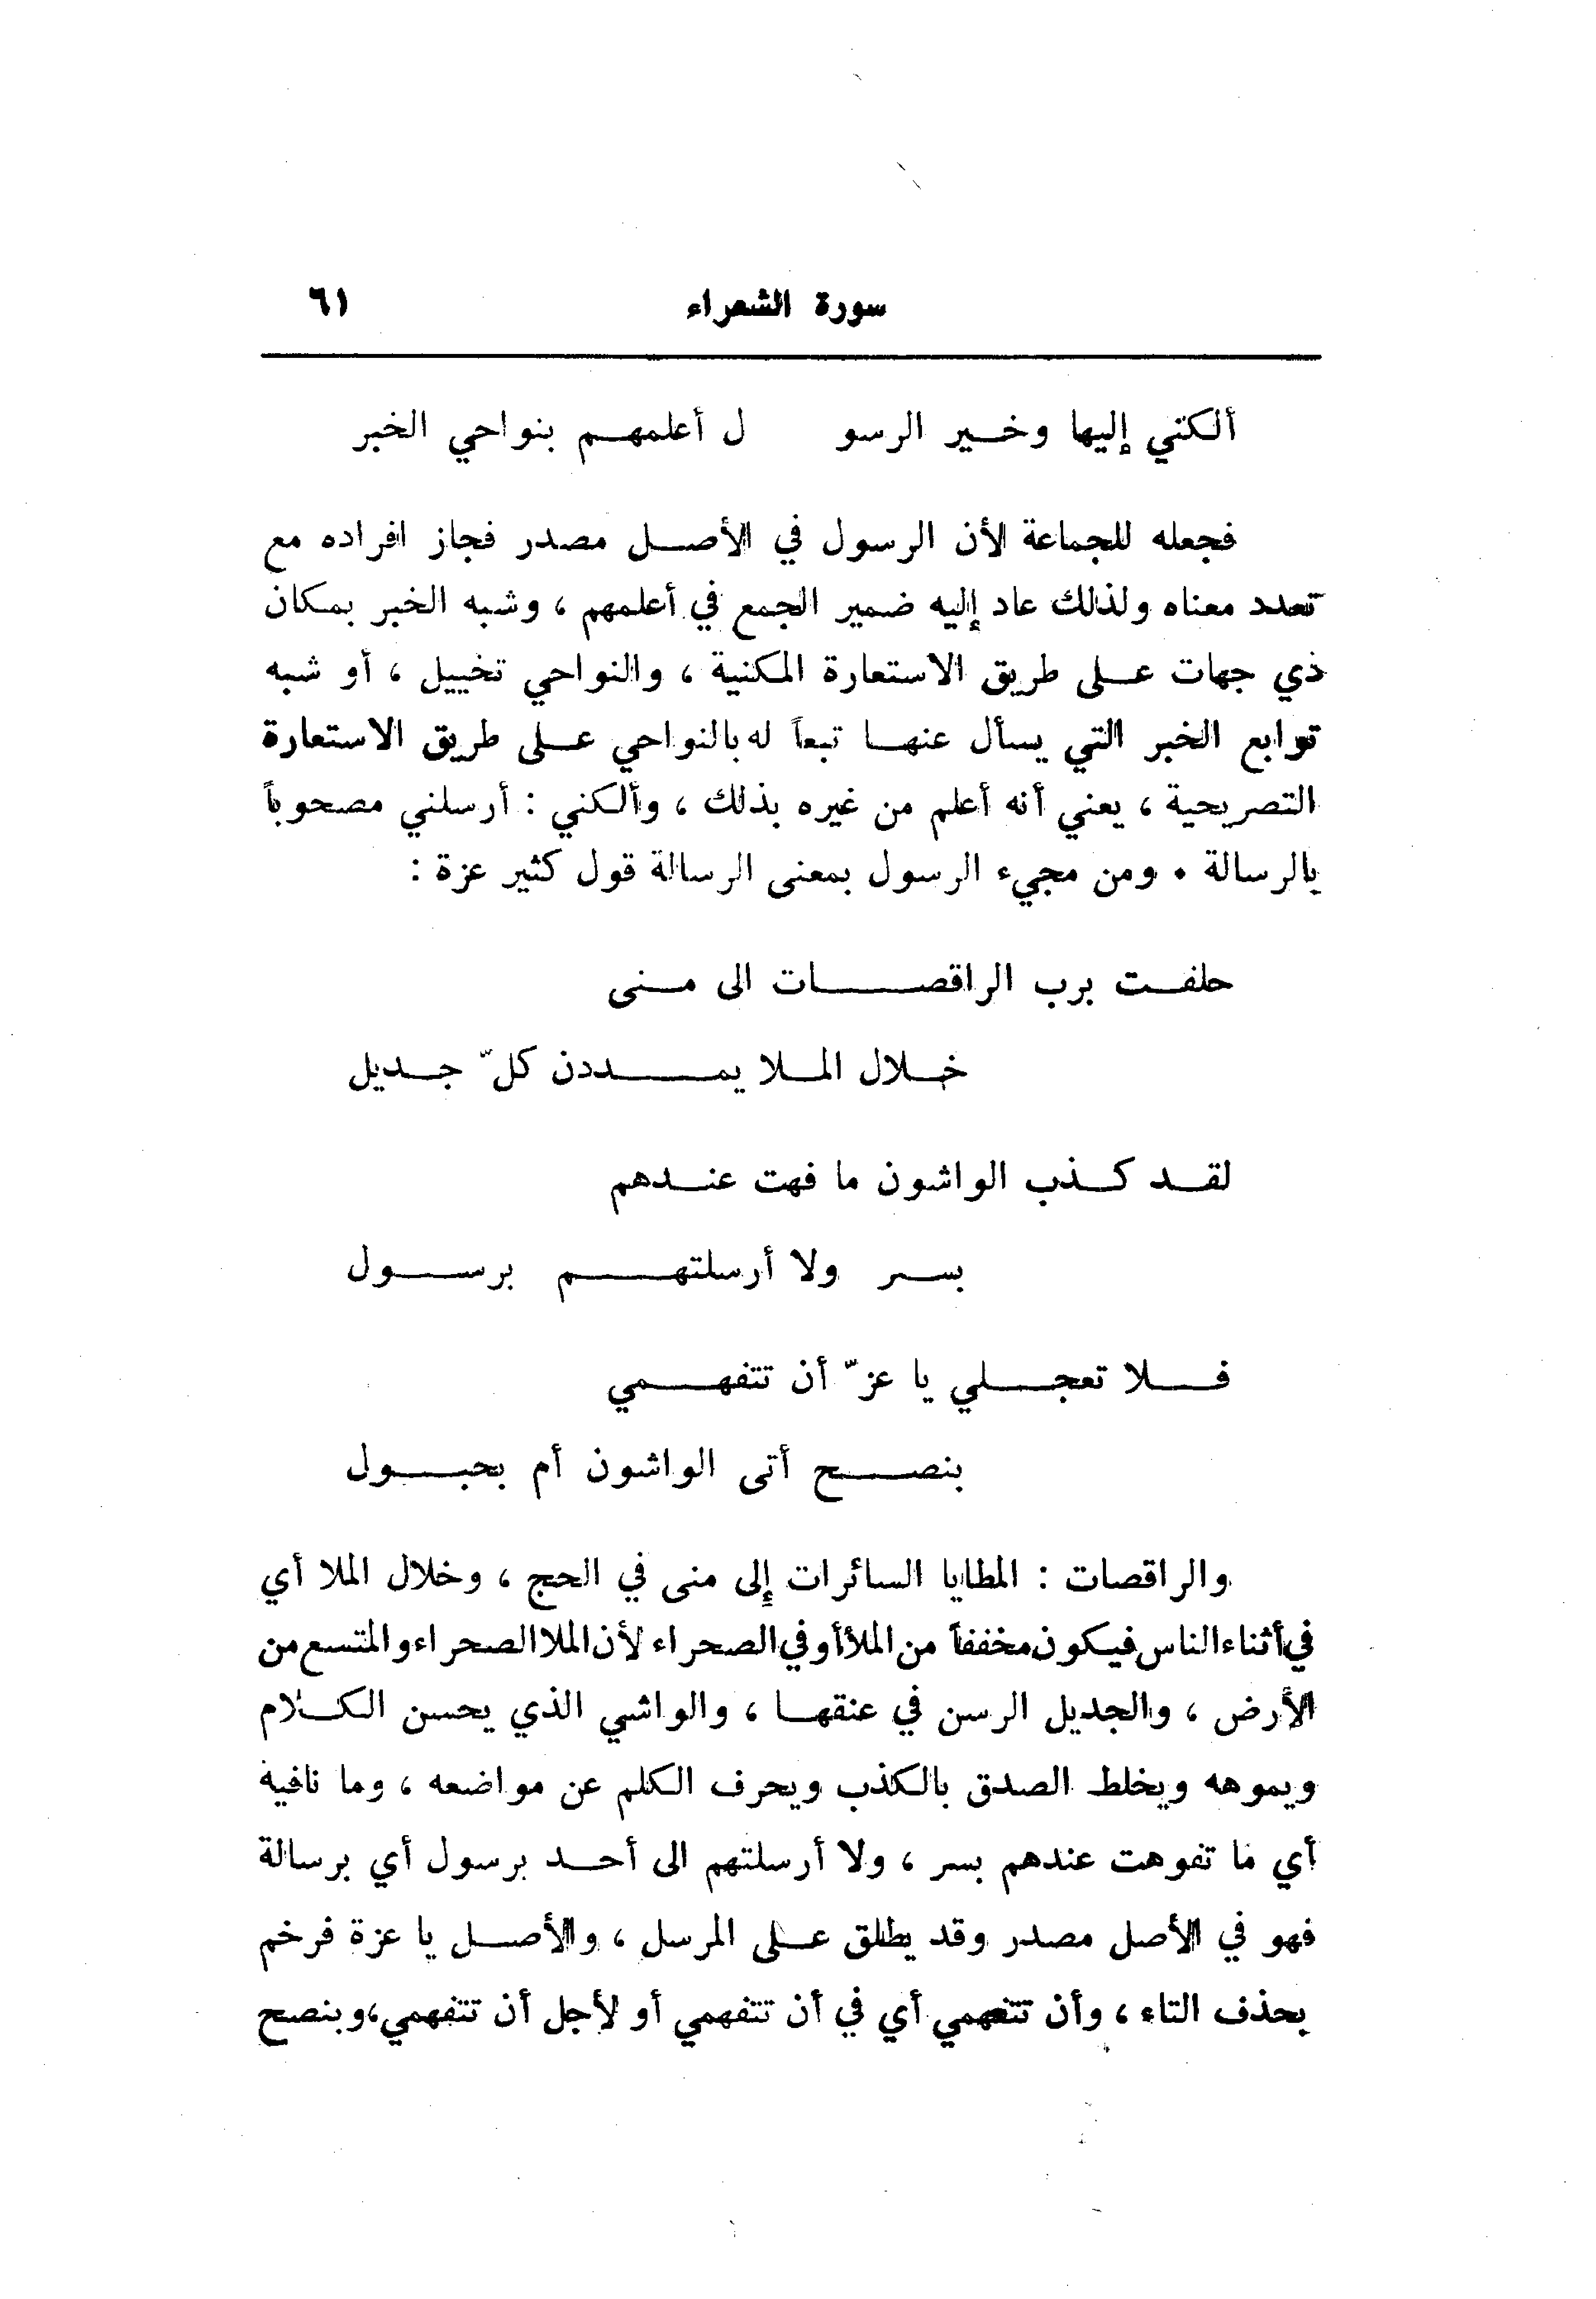 سورة الشعراء ٦١
ألكني إليها وخير الرسو ل أعلمهم بنواحي الخبر
فجعله للجماعة لأن الرسول في الأصل مصدر فجاز افراده مع
تعدد معناه ولذلك عاد إليه ضمير الجمع في أعلمهم ، وشبه الخبر بمكان
ذي جهات على طريق الاستعارة المكنية ، والنواحي تخييل ، أو شبه
توابع الخبر التي يسأل عنها تبعاً له بالنواحي على طريق الاستعارة
التصريحية ، يعني أنه أعلم من غيره بذلك ، وألكني : أرسلني مصحوباً
بالرسالة • ومن مجيء الرسول بمعنى الرسالة قول كثير عزة :
حلفت برب الراقصات الى منى
خلال الملا يمددن كلّ جديل
لقد كذب الواشون ما فهت عندهم
بسر ولا أرسلتهم برسول
فلا تعجلي يا عزّ أن تتفهمي
بنصح أتى الواشون أم بحبول
والراقصات : المطايا السائرات إلى منى في الحج ، وخلال الملا أي
في أثناء الناس فيكون مخففاً من الملأ أو في الصحراء لأن الملا الصحراء والمتسع من
الأرض ، والجديل الرسن في عنقها ، والواشي الذي يحسن الكلام
ويموهه ويخلط الصدق بالكذب ويحرف الكلم عن مواضعه ، وما نافية
أي ما تفوهت عندهم بسر ، ولا أرسلتهم الى أحد برسول أي برسالة
فهو في الأصل مصدر وقد يطلق على المرسل ، والأصل يا عزة فرخم
بحذف التاء ، وأن تتفهمي أي في أن تتفهمي أو لأجل أن تتفهمي ، وبنصح